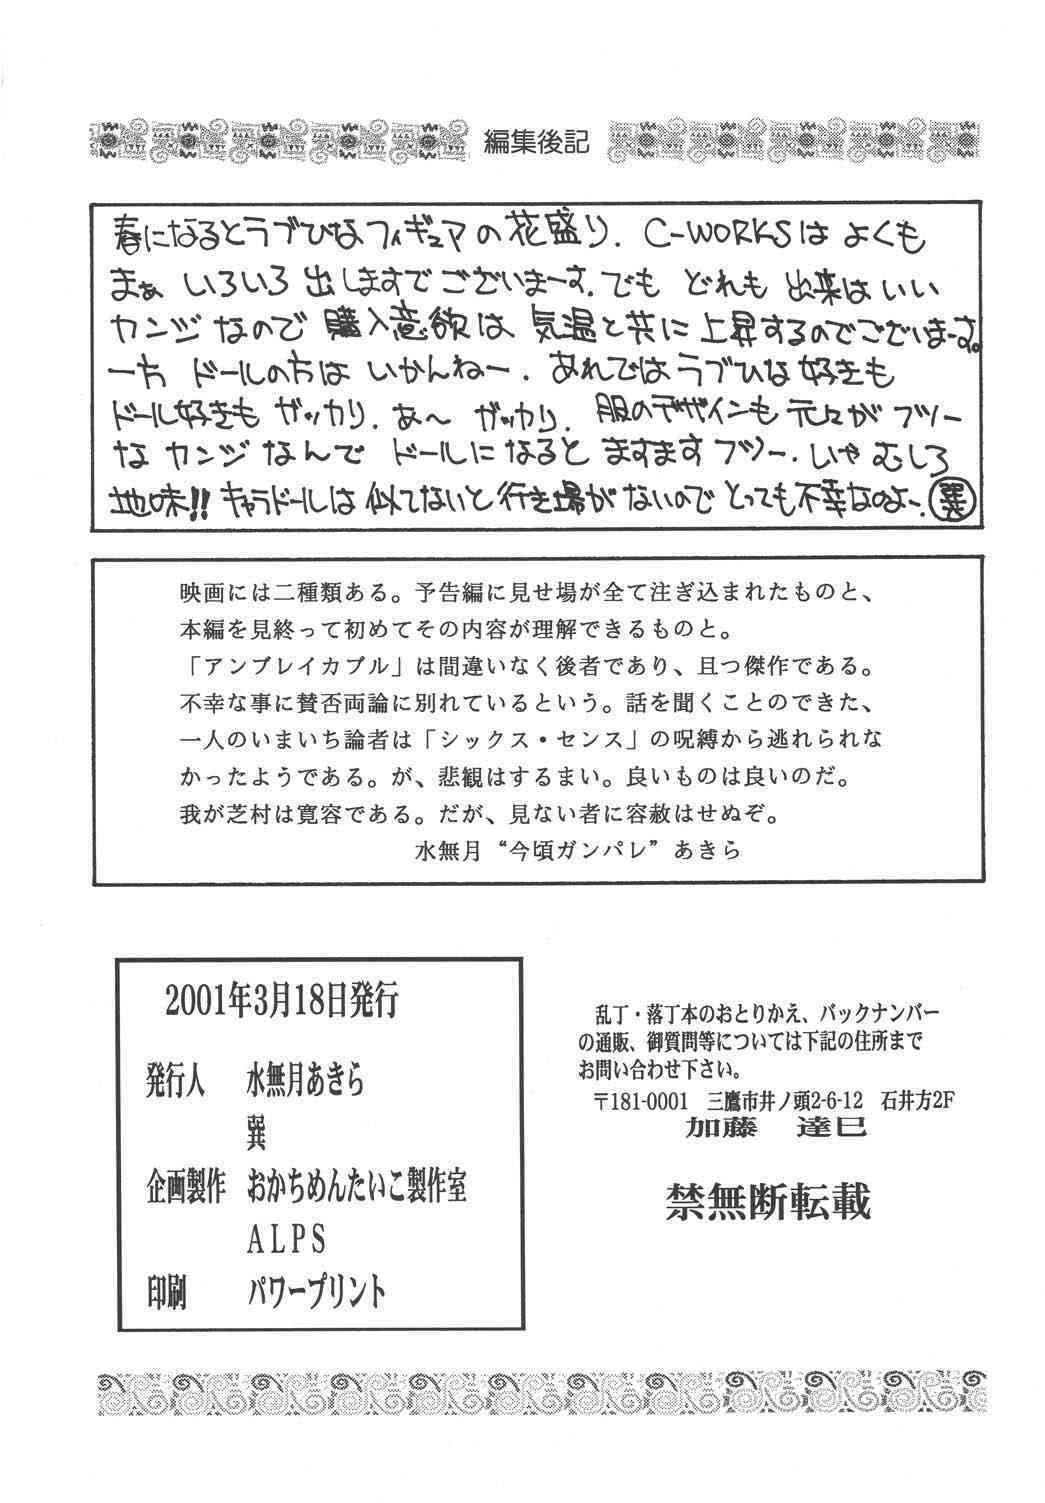 編集後記
春になるとラブひなフィギュアの花盛り. C-WORKSは よくも
まぁ いろいろ 出しますでございまーす. でも どれも 出来はいい
カンジなので 購入意欲は 気温と共に上昇するのでございまーす。
一方 ドールの方は いかんねー. あれではラブひな好きも
ドール好きも ガッカリ. あ〜 ガッカリ. 服のデザインも 元々が フツー
な カンジなんで ドールになると ますますフツー. いや むしろ
地味!! キャラドールは 似てないと 行き場がないので とっても不幸なのよ〜. 巽
映画には二種類ある。予告編に見せ場が全て注ぎ込まれたものと、
本編を見終って初めてその内容が理解できるものと。
「アンブレイカブル」は間違いなく後者であり、且つ傑作である。
不幸な事に賛否両論に別れているという。話を聞くことのできた、
一人のいまいち論者は「シックス・センス」の呪縛から逃れられな
かったようである。が、悲観はするまい。良いものは良いのだ。
我が芝村は寛容である。だが、見ない者に容赦はせぬぞ。
水無月“今頃ガンパレ”あきら
2001年3月18日発行
発行人 水無月あきら
巽
企画製作 おかちめんたいこ製作室
ALPS
印刷 パワープリント
乱丁・落丁本のおとりかえ、バックナンバー
の通販、御質問等については下記の住所まで
お問い合わせ下さい。
〒181-0001 三鷹市井ノ頭2-6-12 石井方2F
加藤 達巳
禁無断転載